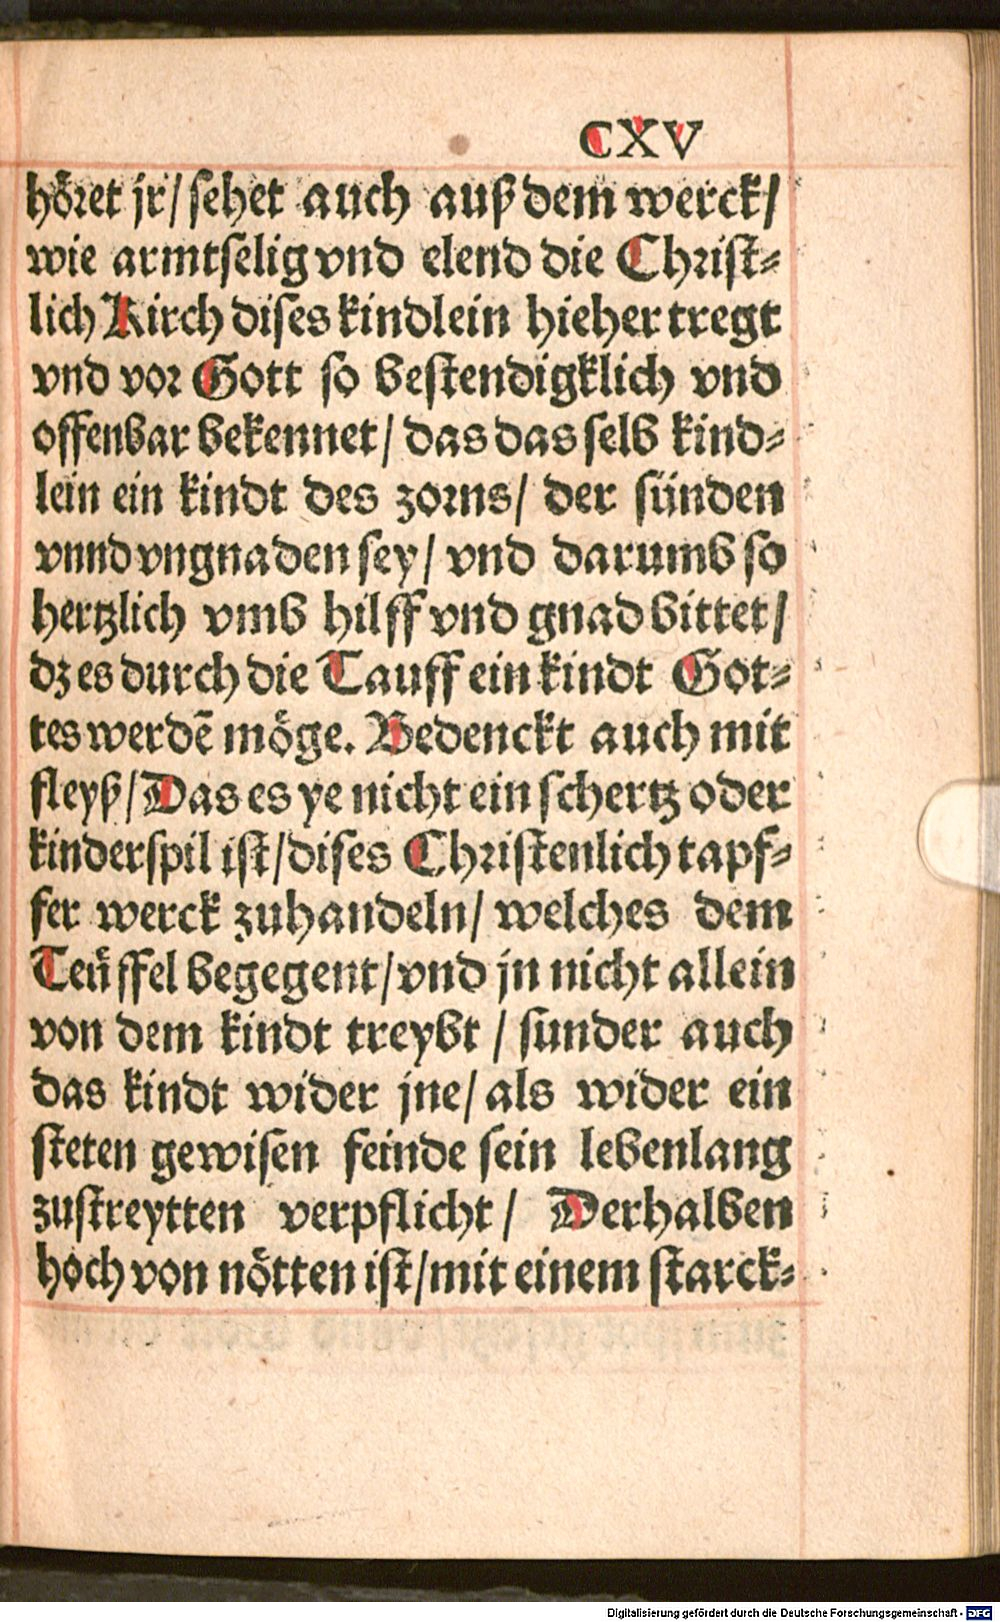 CXV
höret jr/ sehet auch auß dem werck/
wie armtselig vnd elend die Christ-
lich Kirch dises kindlein hieher tregt
vnd vor Gott so bestendigklich vnd
offenbar bekennet/ das das selb kind-
lein ein kindt des zorns/ der sünden
vnnd vngnaden sey/ vnd darumb so
hertzlich vmb hilff vnd gnad bittet/
dz es durch die Tauff ein kindt Got-
tes werdē möge. Bedenckt auch mit
fleyß/ Das es ye nicht ein schertz oder
kinderspil ist/ dises Christenlich tapf-
fer werck zuhandeln/ welches dem
Teüffel begegent/ vnd jn nicht allein
von dem kindt treybt / sunder auch
das kindt wider jne/ als wider ein
steten gewisen feinde sein lebenlang
zustreytten verpflicht/ Derhalben
hoch von nötten ist/ mit einem starck-
Digitalisierung gefördert durch die Deutsche Forschungsgemeinschaft - DFG